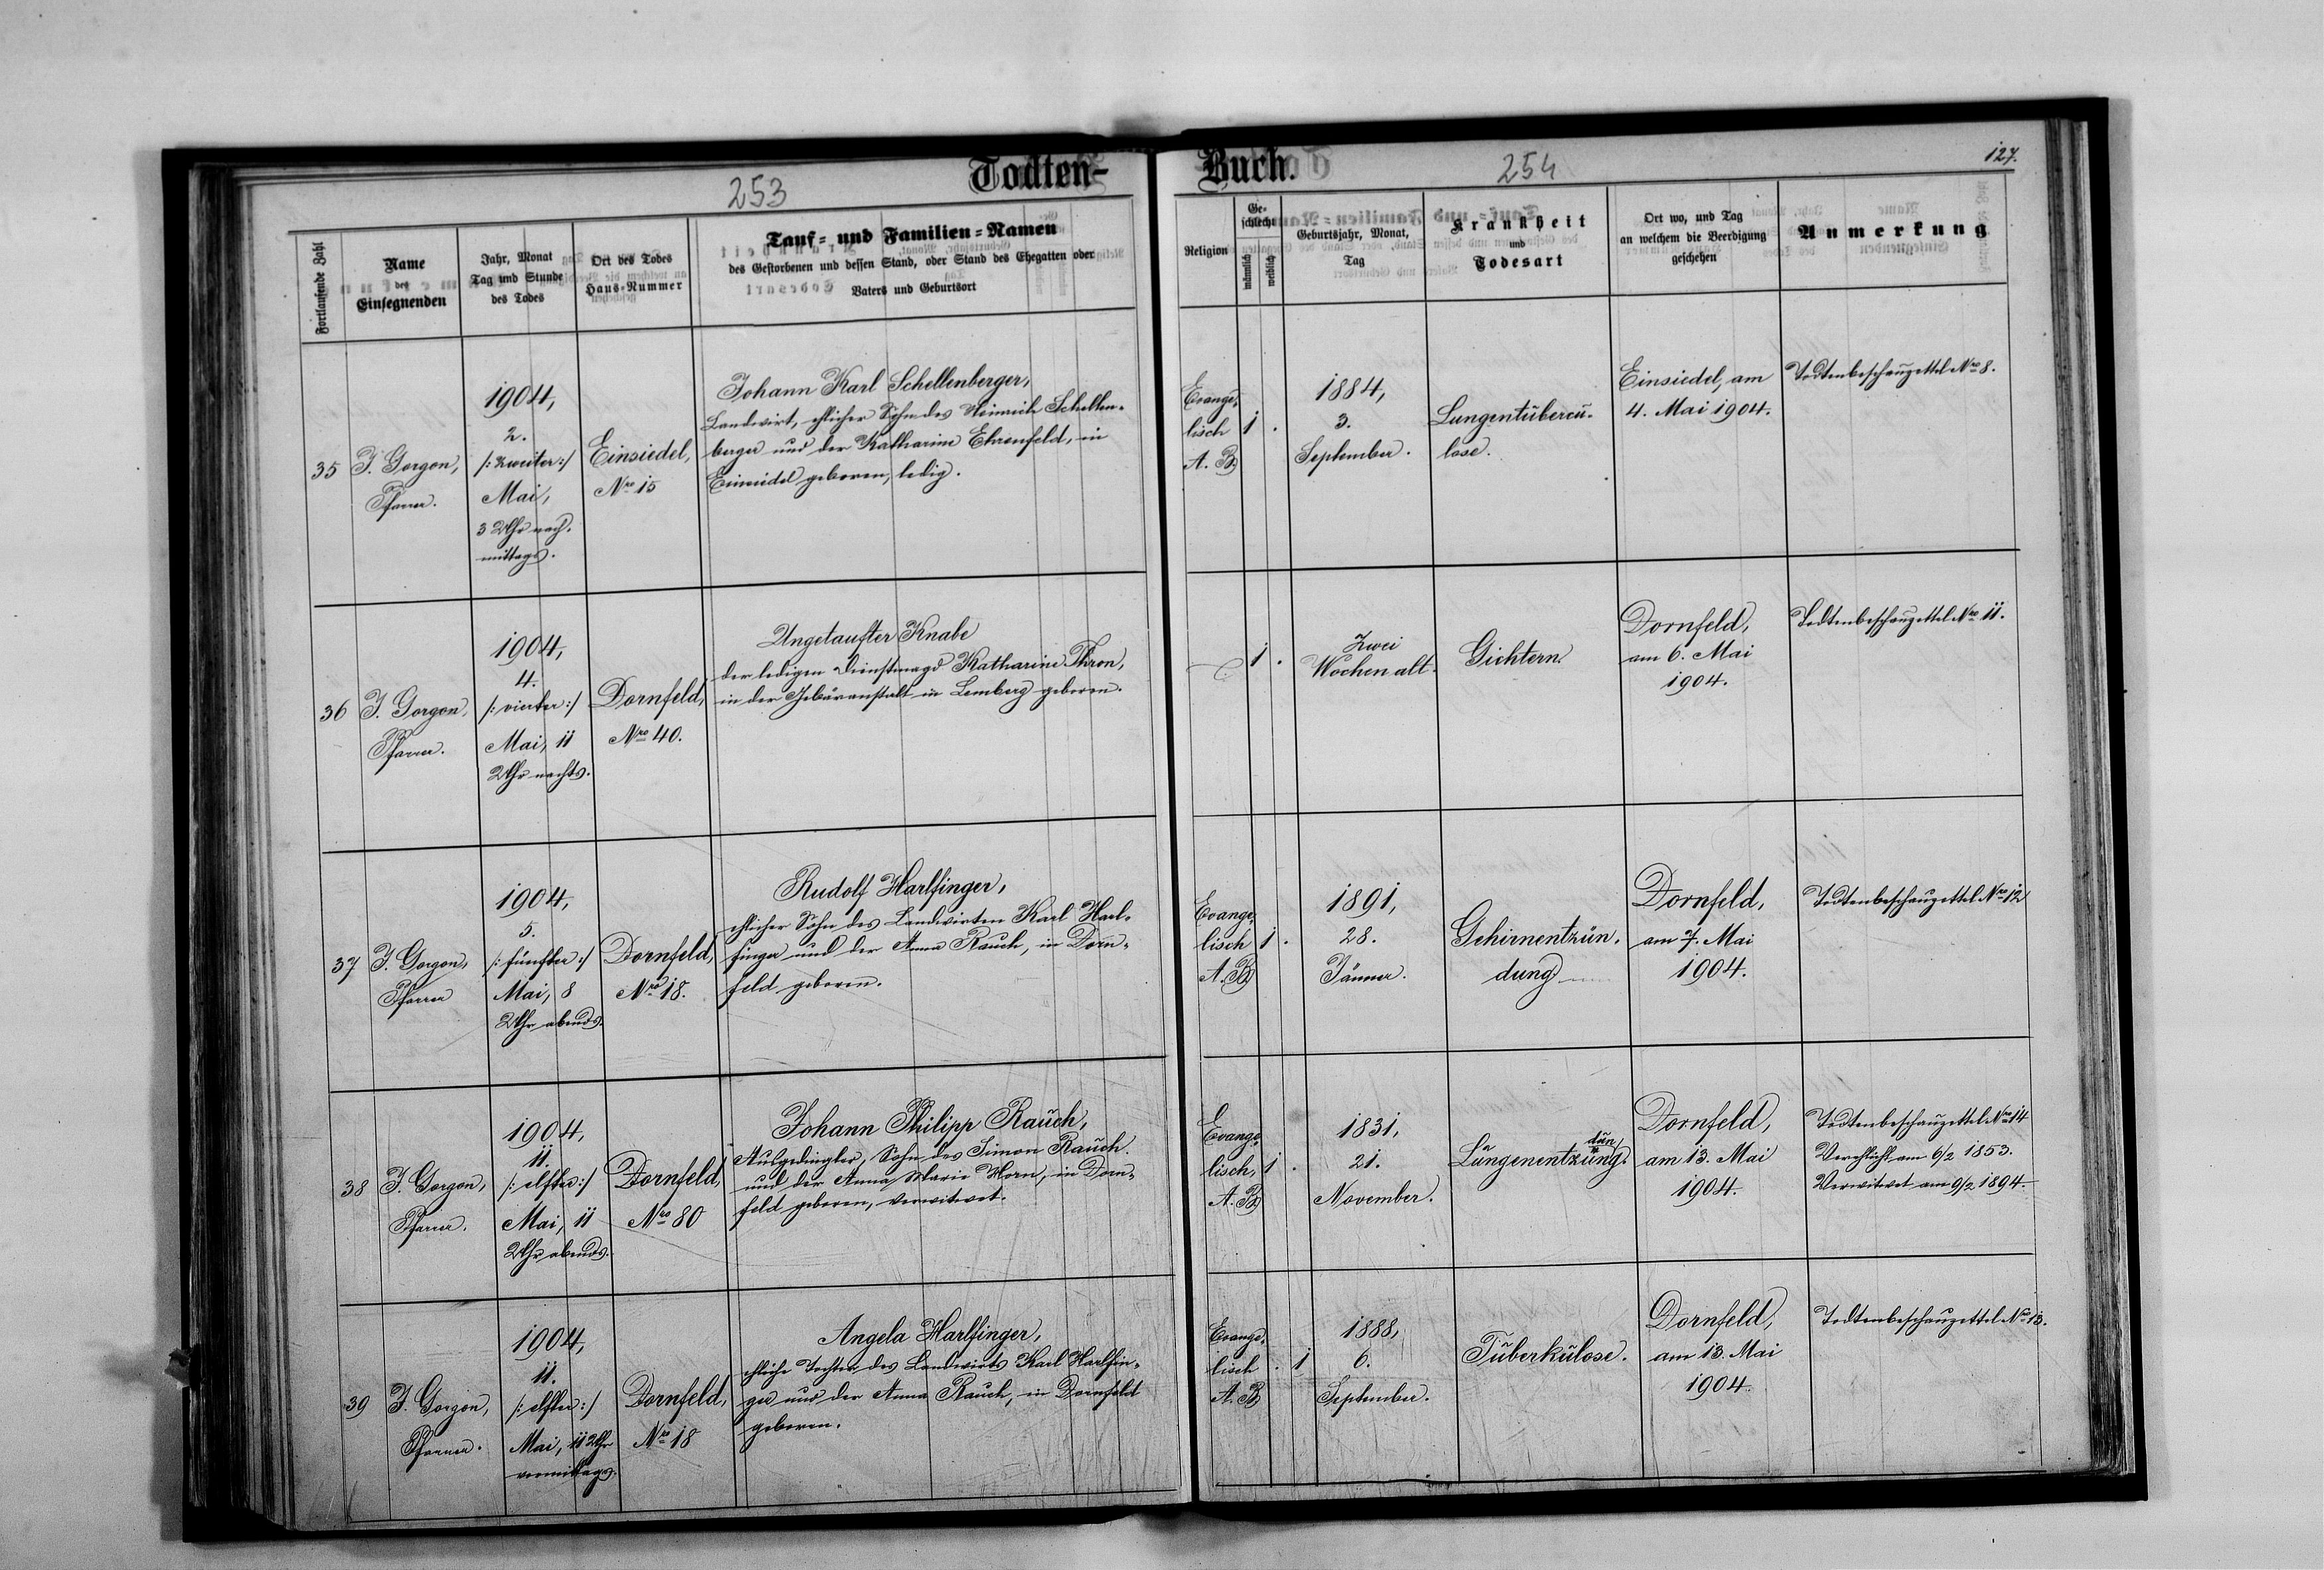 Todten-
253
Fortlaufende Zahl
Name
des
Einsegnenden
Jahr, Monat
Tag und Stunde
des Todes
Ort des Todes
Haus-Nummer
Tauf- und Familien-Namen
des Gestorbenen und dessen Stand, oder Stand des Ehegatten oder
Vaters und Geburtsort
35
J. Gorgon,
Pfarrer.
1904,
2.
/: zweiter :/
Mai,
3 Uhr nach-
mittags.
Einsiedel,
Nro 15
Johann Karl Schellenberger,
Landwirt, ehlicher Sohn des Heinrich Schellen-
berger und der Katharine Ehrenfeld, in
Einsiedel geboren, ledig.
36
J. Gorgon,
Pfarrer.
1904,
4.
/: vierter :/
Mai, 11
Uhr nachts.
Dornfeld,
Nro 40.
Ungetaufter Knabe
der ledigen Dienstmagd Katharine Thron,
in der Gebäranstalt in Lemberg geboren.
37
J. Gorgon,
Pfarrer
1904,
5.
/: fünfter :/
Mai, 8
Uhr abends.
Dornfeld,
Nro 18.
Rudolf Harlfinger,
ehlicher Sohn des Landwirten Karl Harl-
finger und der Anna Rauch, in Dorn-
feld geboren.
38
J. Gorgon,
Pfarrer.
1904,
11.
/: elfter :/
Mai, 11
Uhr abends.
Dornfeld,
Nro 80
Johann Philipp Rauch,
Ausgedingler, Sohn des Simon Rauch
und der Anna Marie Horn, in Dorn-
feld geboren, verwitwet.
39
J. Gorgon,
Pfarrer.
1904,
11.
/: elfter :/
Mai, 11 Uhr
vormittags.
Dornfeld,
Nro 18
Angela Harlfinger,
ehliche Tochter des Landwirts Karl Harlfin-
ger und der Anna Rauch, in Dornfeld
geboren.
Buch.
254
127.
Religion
Ge-
schlecht
männlich
weiblich
Geburtsjahr, Monat,
Tag
Krankheit
und
Todesart
Ort wo, und Tag
an welchem die Beerdigung
geschehen
Anmerkung
Evange-
lisch
A. B.
1 .
1884,
3.
September.
Lungentubercu-
lose.
Einsiedel, am
4. Mai 1904.
Todtenbeschauzettel Nro 8.
1 .
Zwei
Wochen alt.
Gichtern.
Dornfeld,
am 6. Mai
1904.
Todtenbeschauzettel Nro 11.
Evange-
lisch
A. B.
1 .
1891,
28.
Jänner.
Gehirnentzün-
dung
Dornfeld,
am 7. Mai
1904.
Todtenbeschauzettel Nro 12
Evange-
lisch,
A. B.
1 .
1831,
21.
November.
dun
Lungenentzung.
Dornfeld,
am 13. Mai
1904.
Todtenbeschauzettel Nro 14
Verehlicht am 6/2 1853.
Verwitwet am 9/2 1894.
Evange-
lisch
A. B.
. 1
1888,
6.
September.
Tuberkulose.
Dornfeld,
am 13. Mai
1904.
Todtenbeschauzettel Nro 13.